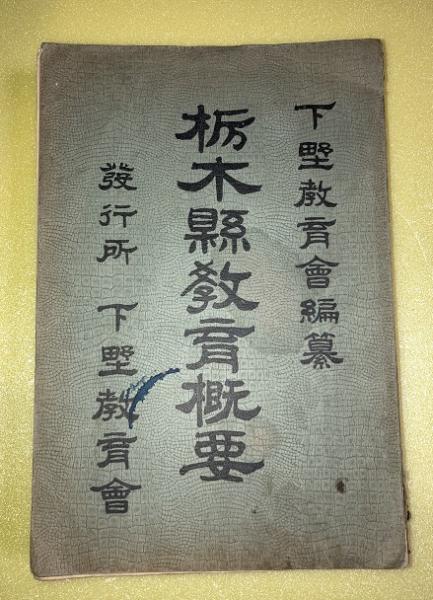 下野教育會編纂
栃木縣教育概要
發行所 下野教育會